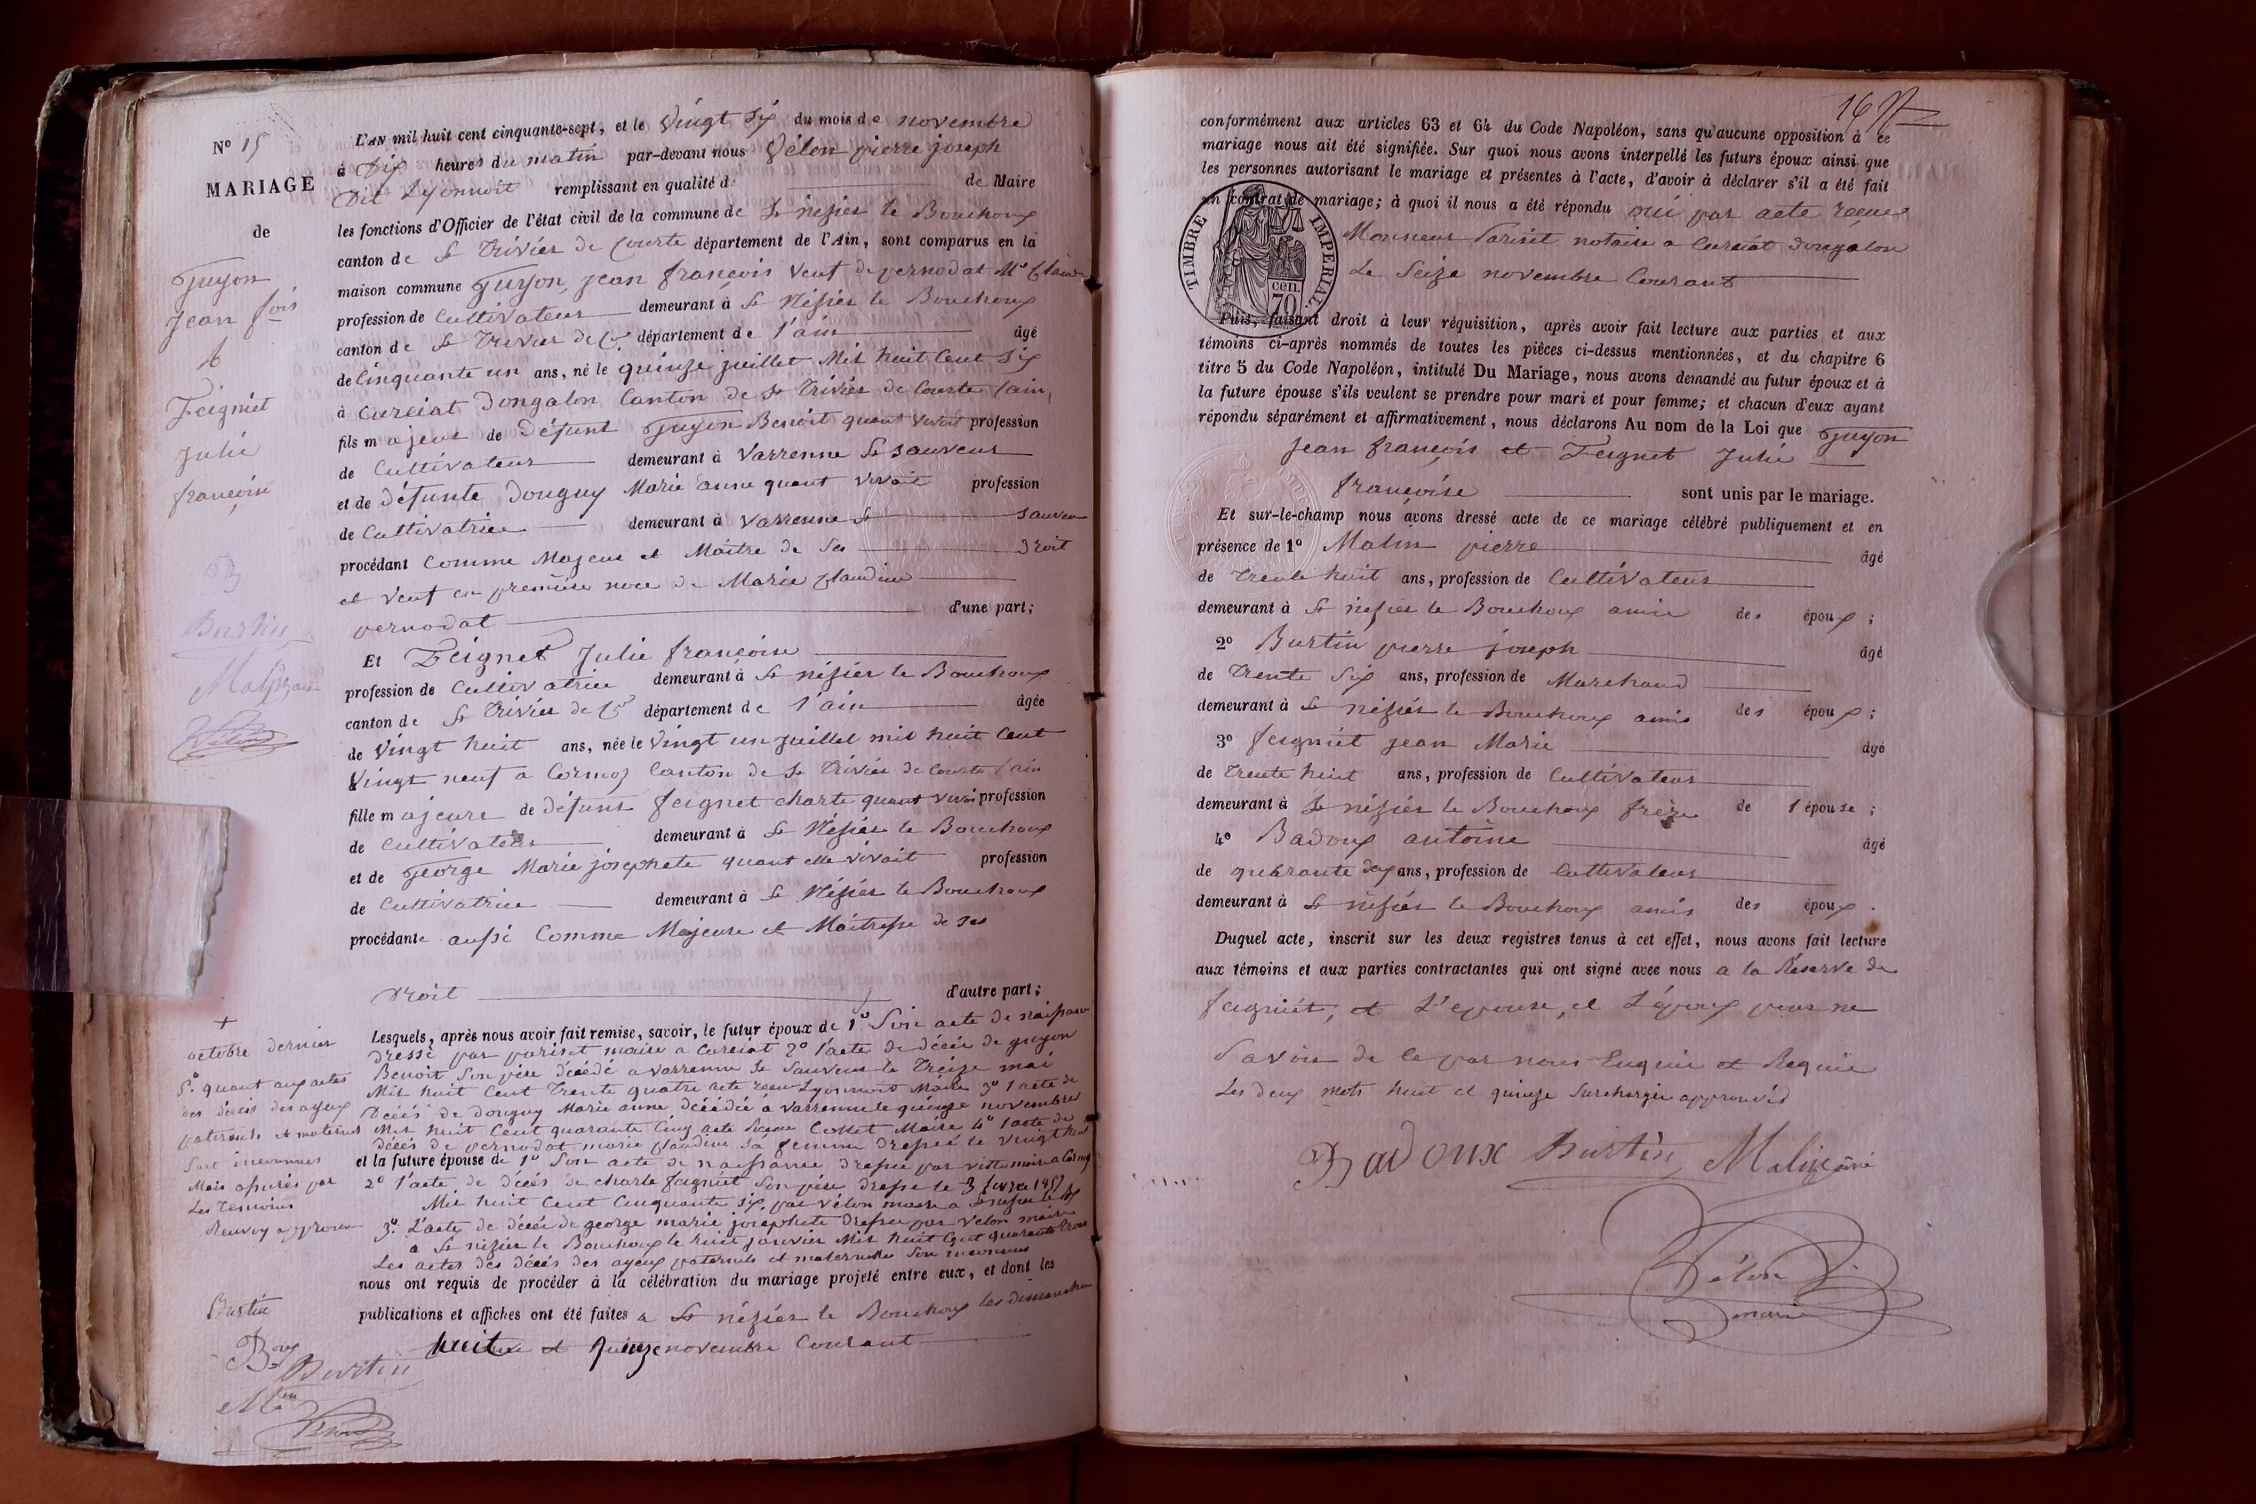 N° 15
MARIAGE
de
Guyon
Jean fois
&
Feigniet
Julie
françoise
Burtin
Malin
L'AN mil huit cent cinquante-sept, et le Vingt Six du mois de novembre
à Dix heures du matin par-devant nous Vélon pierre joseph
Dit Lyonnoit remplissant en qualité de Maire
les fonctions d'Officier de l'état civil de la commune de St nizier le Bouchoux
canton de St Trivier de Courte département de l'Ain, sont comparus en la
maison commune Guyon, jean françois Veuf de pernodat Mie Claudi
profession de Cultivateur demeurant à St Nizier le Bouchoux
canton de St Trivier de C. département de l'ain âgé
de Cinquante un ans, né le quinze juillet Mil huit Cent Six
à Curciat Dongalon Canton de St Trivier de Courte (ain)
fils majeur de défunt Guyon Benoit quant vivait profession
de Cultivateur demeurant à Varrenne St sauveur
et de défunte Donguy Marie anne quant vivait profession
de Cultivatrice demeurant à Varrenne St sauveur
procédant Comme Majeur et Maitre de Ses Droit
et Veuf en premiere noce de Marie Claudine
pernodat d'une part;
Et Feignet Julie françoise
profession de Cultivatrice demeurant à St nizier le Bouchoux
canton de St Trivier de Cte département de l'ain âgée
de Vingt huit ans, née le Vingt un juillet mil huit Cent
Vingt neuf a Cormoz Canton de St Trivier de Courte (ain
fille majeure de défunt feignet charle quant vivai profession
de Cultivateur demeurant à St Nizier le Bouchoux
et de George Marie josephete quant elle vivait profession
de Cultivatrice demeurant à St Nizier le Bouchoux
procédante aussi Comme Majeure et Maitresse de ses
Droit d'autre part;
Lesquels, après nous avoir fait remise, savoir, le futur époux de 1° Son acte de naissance
Dressé par parisit maire a Curciat 2° l'acte de décés de guyon
Benoit Son père décédé a varrenne St Sauveur le Treize mai
Mil huit Cent Trente quatre acte recu Lyonnois Maire 3° l'acte de
Décés de donguy Marie anne décédée à varrenne le quinze novembre
Mil huit Cent quarante Cinq acte Maire 4° l'acte de
Décés de pernodat marie claudine sa femme Dressée le Vingt huit
et la future épouse de 1° Son acte de naissance Dressée par maire a Cormoz
2° l'acte de Décés de charle feigniet Son père Dressé le 3
Mil huit Cent Cinquante Six, par Vélon maire a St nizier le Bx
3°. L'acte de décés de george marie josephete Dressée par Velon maire
a St nizier le Bouchoux le huit janvier Mil huit Cent quarante
Les actes des décés des ayeux paternels et maternelles Son inconnus
nous ont requis de procéder à la célébration du mariage projeté entre eux, et dont les
publications et affiches ont été faites a St nizier le Bouchoux les dimanches
huit et quinze novembre Courant
+
octobre dernier
5° quant aux actes
des décés des ayeux
paternels et maternels
Sont inconnus
Mais assurés par
Les Temoins
Renvoy approuvé
Burtin
Boux
Burtin
Min
16
conformément aux articles 63 et 64 du Code Napoléon, sans qu'aucune opposition à ce
mariage nous ait été signifiée. Sur quoi nous avons interpellé les futurs époux ainsi que
les personnes autorisant le mariage et présentes à l'acte, d'avoir à déclarer s'il a été fait
un contrat de mariage; à quoi il nous a été répondu oui par acte reçue
Monsieur Parisit notaire a Curciat Dongalon
Le Seize novembre Courant
TIMBRE IMPERIAL
CEN. 70
Puis, faisant droit à leur réquisition, après avoir fait lecture aux parties et aux
témoins ci-après nommés de toutes les pièces ci-dessus mentionnées, et du chapitre 6
titre 5 du Code Napoléon, intitulé Du Mariage, nous avons demandé au futur époux et à
la future épouse s'ils veulent se prendre pour mari et pour femme; et chacun d'eux ayant
répondu séparément et affirmativement, nous déclarons Au nom de la Loi que Guyon
Jean françois et Feignet Julie
françoise sont unis par le mariage.
Et sur-le-champ nous avons dressé acte de ce mariage célébré publiquement et en
présence de 1° Malin pierre âgé
de Trente huit ans, profession de Cultivateur
demeurant à St nizier le Bouchoux amie des époux;
2° Burtin pierre joseph âgé
de Trente Six ans, profession de Marchand
demeurant à St nizier le Bouchoux amis des époux;
3° feigniet jean Marie âgé
de Trente huit ans, profession de Cultivateur
demeurant à St nizier le Bouchoux frère de l épouse;
4° Badoux antoine âgé
de quarante deux ans, profession de Cultivateur
demeurant à St nizier le Bouchoux amis des époux.
Duquel acte, inscrit sur les deux registres tenus à cet effet, nous avons fait lecture
aux témoins et aux parties contractantes qui ont signé avec nous a la Réserve de
feigniet, et L'epouse, et L'époux pour ne
Savoir de ce par nous Enquie et Requie
Les deux mots huit et quinze Surchargée approuvéd
Badoux Burtin Malin
Vélon
maire